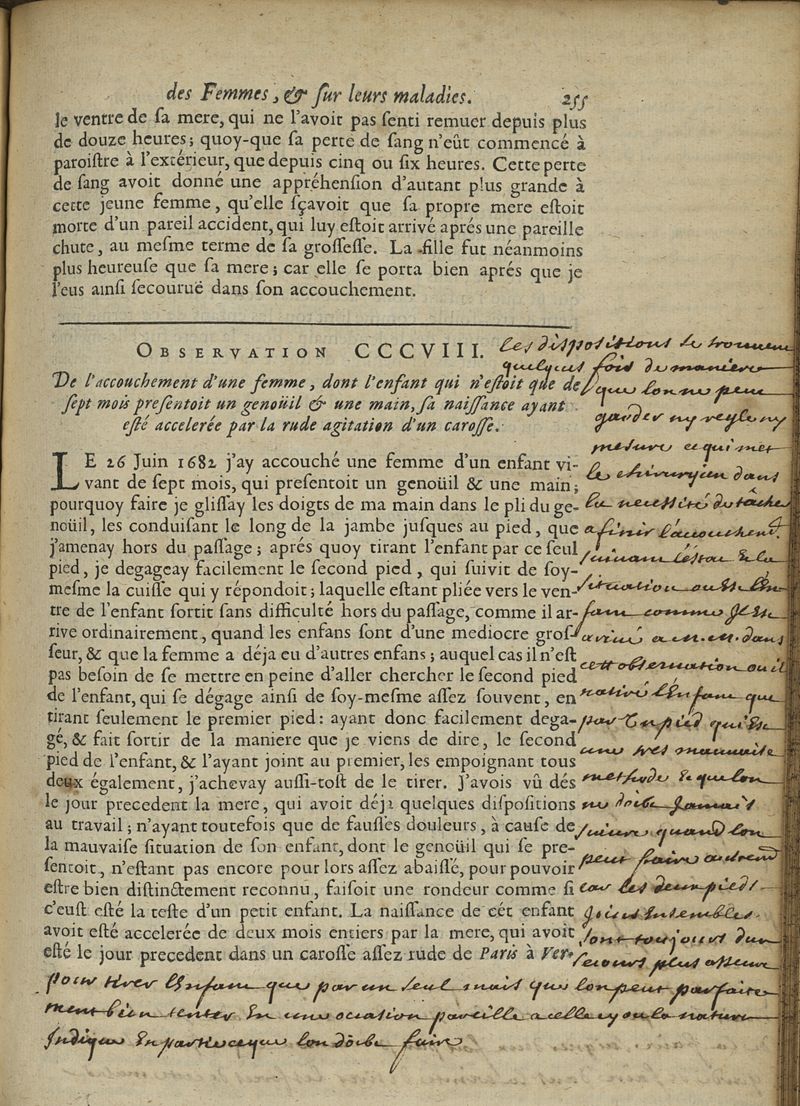 des Femmes, & ſur leurs maladies. 255
le ventre de ſa mere, qui ne l'avoit pas ſenti remuer depuis plus
de douze heures; quoy-que ſa perte de ſang n'eût commencé à
paroiſtre à l'extérieur, que depuis cinq ou ſix heures. Cette perte
de ſang avoit donné une appréhenſion d'autant plus grande à
cette jeune femme, qu'elle ſçavoit que ſa propre mere eſtoit
morte d'un pareil accident, qui luy eſtoit arrivé aprés une pareille
chute, au meſme terme de ſa groſſeſſe. La fille fut néanmoins
plus heureuſe que ſa mere; car elle ſe porta bien aprés que je
l'eus ainſi ſecouruë dans ſon accouchement.
OBSERVATION CCCVIII.
De l'accouchement d'une femme, dont l'enfant qui n'eſtoit que de
ſept mois preſentoit un genoüil & une main, ſa naiſſance ayant
eſté accelerée par la rude agitation d'un caroſſe.
LE 26 Juin 1682 j'ay accouché une femme d'un enfant vi-
vant de ſept mois, qui preſentoit un genoüil & une main;
pourquoy faire je gliſſay les doigts de ma main dans le pli du ge-
noüil, les conduiſant le long de la jambe juſques au pied, que
j'amenay hors du paſſage; aprés quoy tirant l'enfant par ce ſeul
pied, je degageay facilement le ſecond pied, qui ſuivit de ſoy-
meſme la cuiſſe qui y répondoit; laquelle eſtant pliée vers le ven-
tre de l'enfant ſortit ſans difficulté hors du paſſage, comme il ar-
rive ordinairement, quand les enfans ſont d'une mediocre groſ-
ſeur, & que la femme a déja eu d'autres enfans; auquel cas il n'eſt
pas beſoin de ſe mettre en peine d'aller chercher le ſecond pied
de l'enfant, qui ſe dégage ainſi de ſoy-meſme aſſez ſouvent, en
tirant ſeulement le premier pied: ayant donc facilement dega-
gé, & fait ſortir de la maniere que je viens de dire, le ſecond
pied de l'enfant, & l'ayant joint au premier, les empoignant tous
deux également, j'achevay auſſi-toſt de le tirer. J'avois vû dés
le jour precedent la mere, qui avoit déja quelques diſpoſitions
au travail; n'ayant toutefois que de fauſſes douleurs, à cauſe de
la mauvaiſe ſituation de ſon enfant, dont le genoüil qui ſe pre-
ſentoit, n'eſtant pas encore pour lors aſſez abaiſſé, pour pouvoir
eſtre bien diſtinctement reconnu, faiſoit une rondeur comme ſi
c'euſt eſté la teſte d'un petit enfant. La naiſſance de cét enfant
avoit eſté accelerée de deux mois entiers par la mere, qui avoit
eſté le jour precedent dans un caroſſe aſſez rude de Paris à Ver-
Les dispositions se trouvent
quelques fois de maniere
que lon ne peut
garder ny regle ny
mesure ce qui met
le chirurgien dans
la necessité de tacher
a finir l'acouchemt
suivant
situation
fant comme
arivé a m. m. dans
cette observation ou il
par un pied qui est
une tres mauvaise
methode que lon
ne doibt jamais
suivre quand lon
peut faire autrement
car les deux pieds
joints ensembles
sont toujours dun
secours plus asseuré
pour tirer lenfant que par un seul mais que lon peut parfaite
ment bien tenter en une ocasion pareille a celle cy ou la nature
indique en partie ce que lon doibt faire